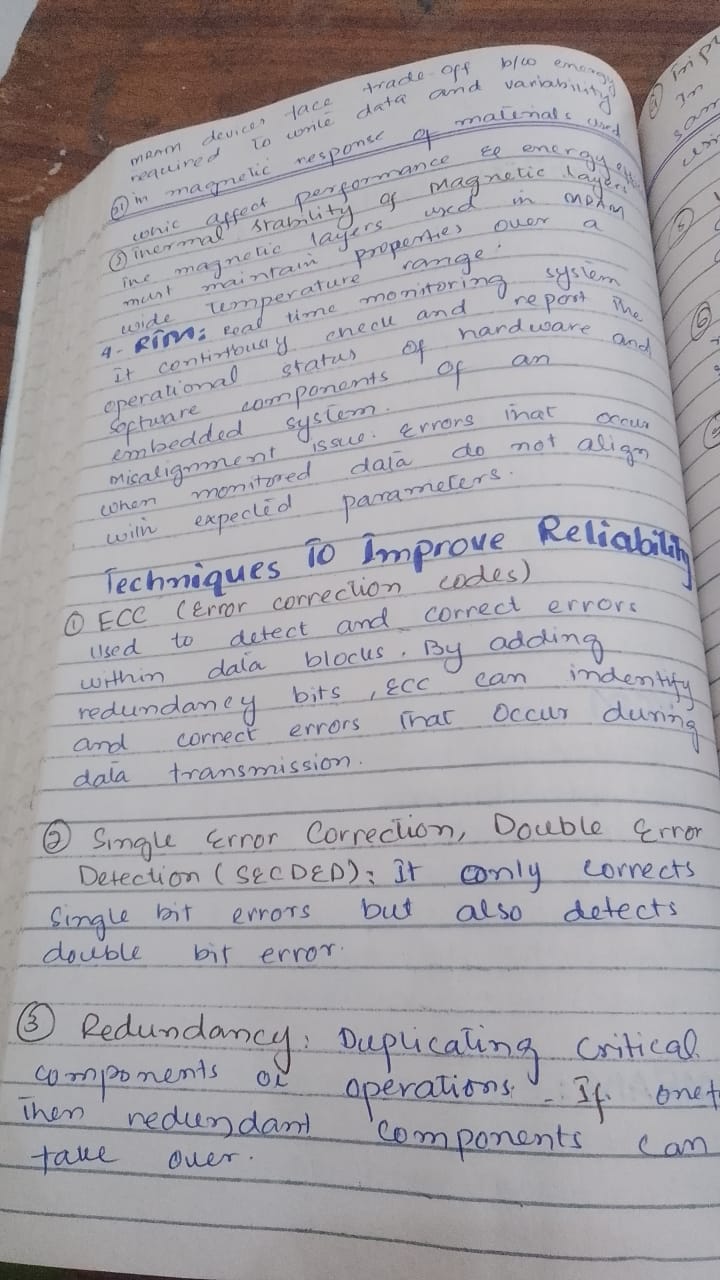 MRAM devices face trade-off b/w energy
required to write data and variability
② in magnetic response of materials used
which affect performance & energy
③ Thermal stability of Magnetic layers
The magnetic layers used in MRAM
must maintain properties over a
wide temperature range.
4- RTM: Real time monitoring system
It continously check and report the
operational status of hardware and
software components of an
embedded system.
misalignment issue: Errors that occur
when monitored data do not align
with expected parameters.
Techniques To Improve Reliability
① ECC (Error correction codes)
Used to detect and correct errors
within data blocks. By adding
redundancy bits, ECC can indentify
and correct errors that occur during
data transmission.
② Single Error Correction, Double Error
Detection (SECDED): It only corrects
Single bit errors but also detects
double bit error.
③ Redundancy: Duplicating critical
components or operations. If one
then redundant components can
take over.
inp
In
sam
⑤
⑥